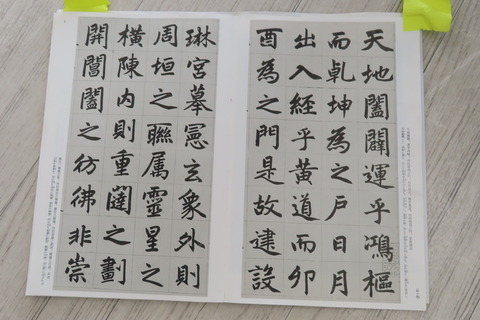 天地闔闢運乎鴻樞
而乾坤為之戶日月
出入經乎黃道而卯
酉為之門是故建設
琳宮摹憲玄象外則
周垣之聯屬靈星之
橫陳內則重闥之劃
開閶闔之彷彿非崇